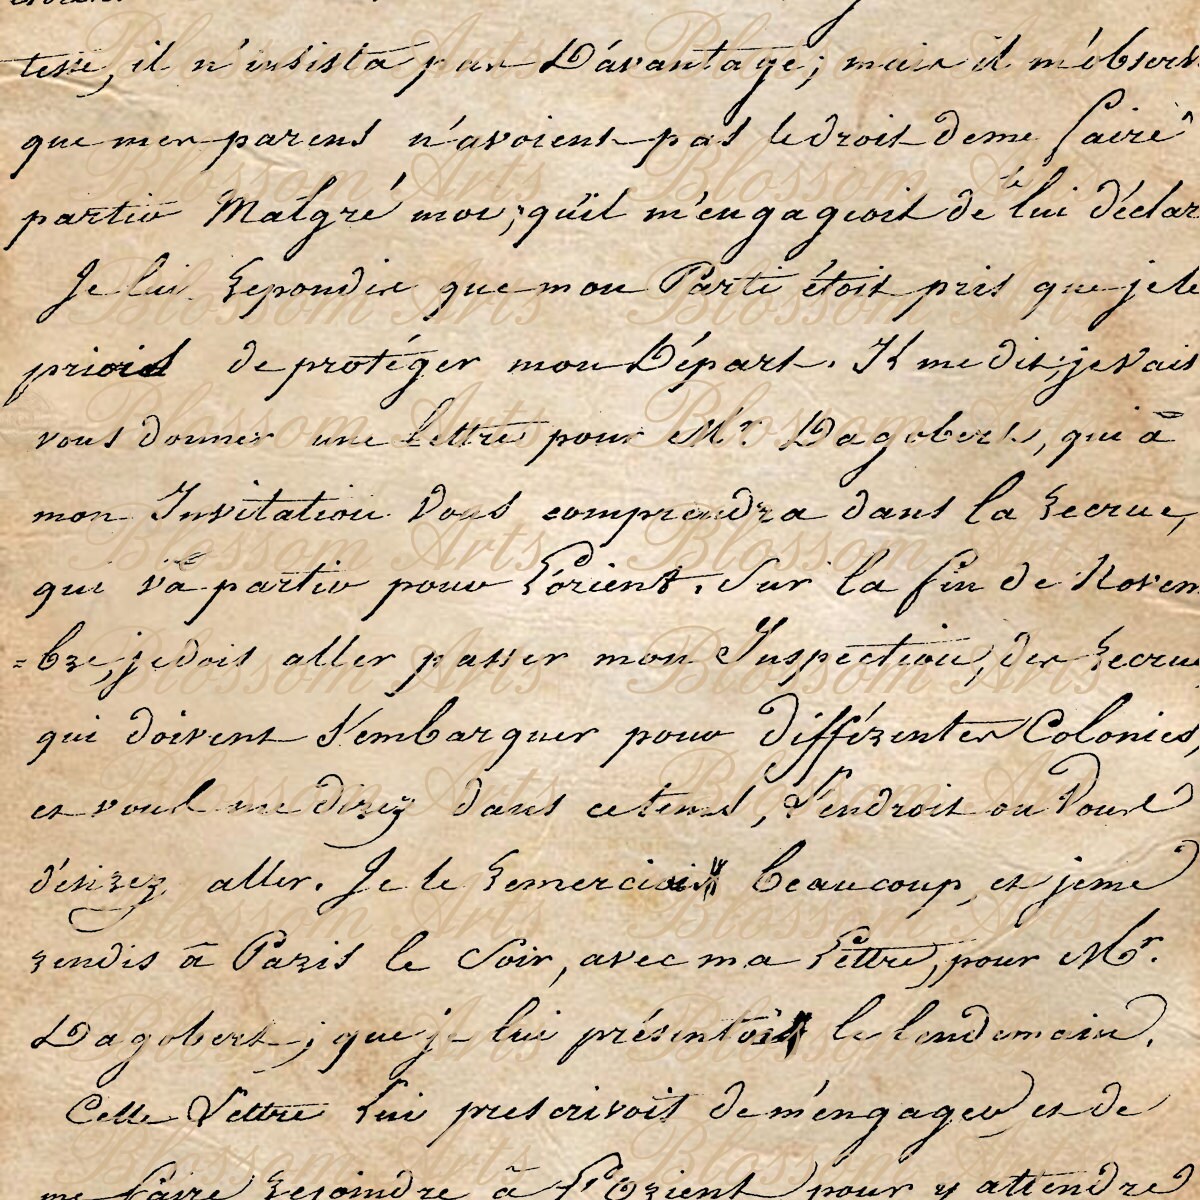 il n'insista pas Davantage; mais il m'observ
que mes parens n'avoient pas le droit de me faire
partir Malgré moi; qu'il m'engageoit de te lui déclar
Je lui repondis que mon Parti étoit pris que je le
priois de protéger mon Départ. Il me dit; je vais
vous donner une lettre pour Mr. Dagobert, qui à
mon Invitation Vous comprendra dans la recrue,
qui va partir pour l'orient. Sur la fin de Novem
=bre, je dois aller passer mon Inspection, des recrue
qui doivent S'embarquer pour différentes Colonies,
et vous me direz dans ce tems, l'endroit ou Vous
désirez aller. Je le remerciois beaucoup, et je me
rendis à Paris le Soir, avec ma lettre, pour Mr.
Dagobert; que je lui présentois le lendemain.
Cette Lettre lui prescrivoit de m'engager, et de
me faire rejoindre à l'Orient pour y attendre
Blossom Arts